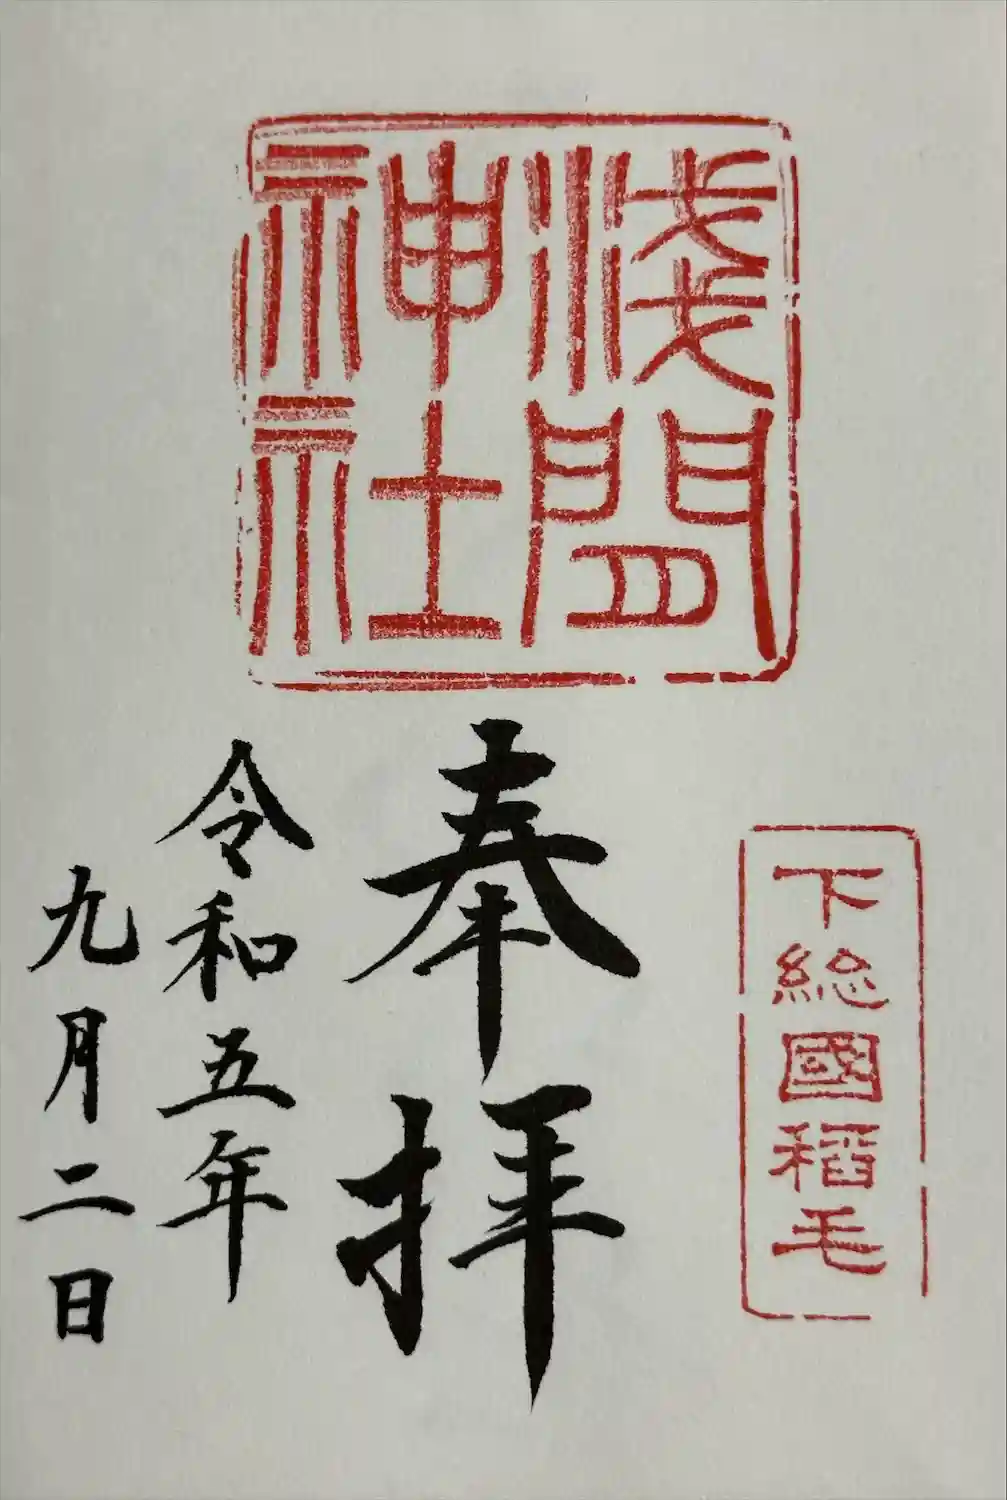 淺間
神社
下総國稻毛
奉拝
令和五年
九月二日